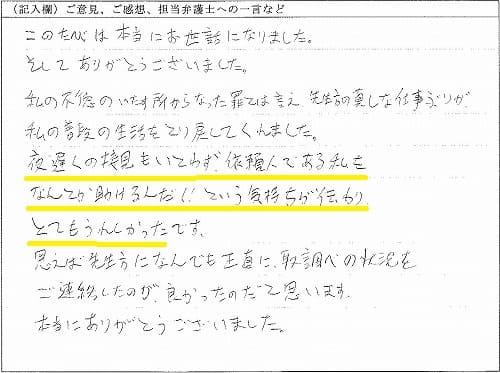 （記入欄）ご意見、ご感想、担当弁護士への一言など
このたびは本当にお世話になりました。
そしてありがとうございました。
私の不徳のいたす所からなった罪とは言え、先生方の真しな仕事ぶりが、
私の普段の生活をとり戻してくれました。
夜遅くの接見もいとわず、依頼人である私を
なんとか助けるんだ！！という気持ちが伝わり、
とてもうれしかったです。
思えば先生方になんでも正直に、取調べの状況を
ご連絡したのが、良かったのだと思います。
本当にありがとうございました。